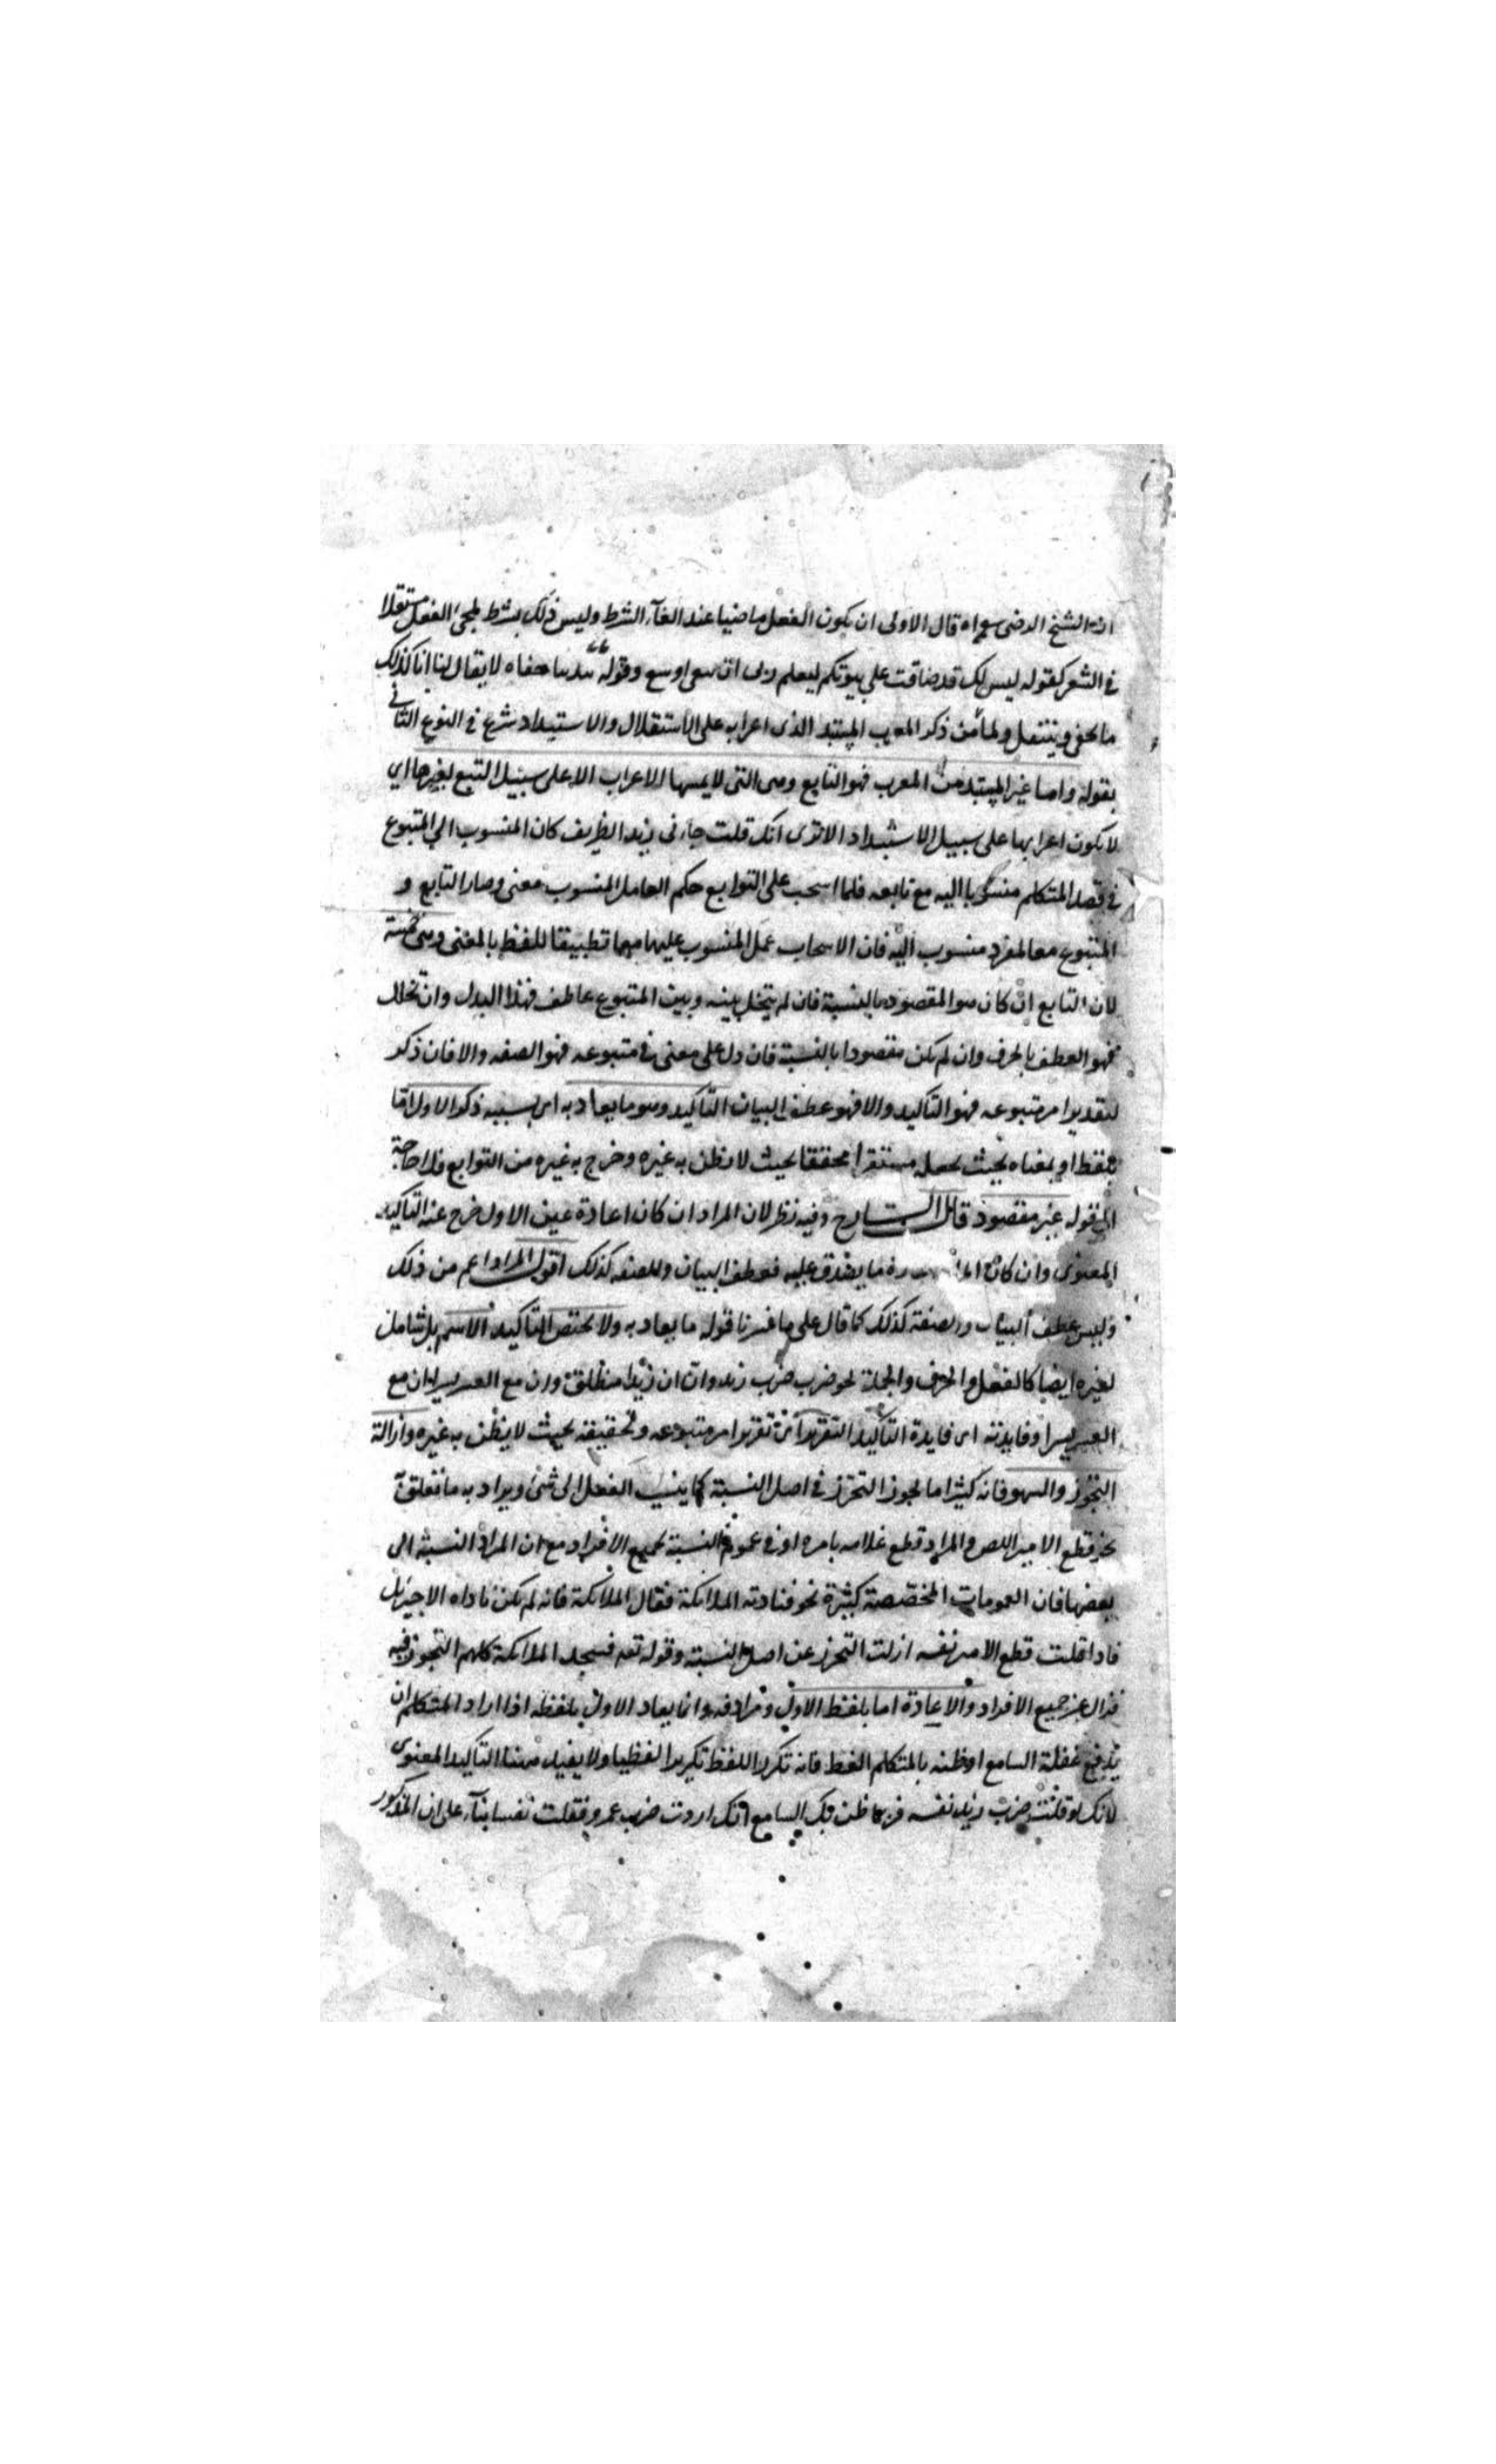 الشيخ الرضى قال الاولى ان يكون الفعل ماضيا عند الغآء الشرط وليس ذلك بشرط لمجئ الفعل مستقلا
فى الشعر كقوله ليس لك قد ضاقت على بيوتكم ليعلم ربى ان اوسع وقوله لا يقال لنا انا كذلك
ما نحفى وننتعل ولما ذكر المعرب المستبد الذى اعرابه على الاستقلال والاستبداد شرع فى النوع الثانى
بقوله واما غير المستبد من المعرب فهو التابع وهى التى لا يمسها الاعراب الا على سبيل التبع لغيرها اى
لا يكون اعرابها على سبيل الاستبداد الا ترى انك قلت جاءنى زيد الظريف كان المنسوب الى المتبوع
فى قصد المتكلم منسوبا اليه مع تابعه فلما انسحب على التوابع حكم العامل المنسوب معنى وصار التابع و
المتبوع معا لمفرد منسوب اليه فان الانسحاب عمل المنسوب عليهما تطبيقا للفظ بالمعنى وهى خمسة
لان التابع ان كان هو المقصود بالنسبة فان لم يتخلل بينه وبين المتبوع عاطف فهذا البدل وان تخلل
فهو العطف بالحرف وان لم يكن مقصودا بالنسبة فان دل على معنى فى متبوعه فهو الصفه والا فان ذكر
لتقدير امر متبوعه فهو التاكيد والا فهو عطف البيان التاكيد وهو ما يعاد به اى بسببه ذكر الاول اما
بلفظ او بمعناه بحيث يجعله مستقرا محققا بحيث لا يظن به غيره وخرج به غيره من التوابع فلا حاجة
الى قوله غير مقصود قال الشارح وفيه نظر لان المراد ان كان اعادة عين الاول خرج عنه التاكيد
المعنوى وان كان ما يصدق عليه فعطف البيان والصفه كذلك اقول المراد اعم من ذلك
وليس عطف البيان والصفة كذلك كما قال على ما فسرنا قوله ما يعاد به ولا يختص التاكيد الاسم بل شامل
لغيره ايضا كالفعل والحرف والجملة نحو ضرب ضرب زيد وان ان زيدا منطلق وان مع العسر يسرا ان مع
العسر يسرا وفايدته اى فايدة التاكيد التقرير اى تقرير امر متبوعه وتحقيقه بحيث لا يظن به غيره وازالة
التجوز والسهو فانه كثيرا ما يجوز التجوز فى اصل النسبة كما ينسب الفعل الى شئ ويراد به ما تعلق
نحو قطع الامير اللص والمراد قطع غلامه بامره او فى عموم النسبة لجميع الافراد مع ان المراد النسبة الى
بعضها فان العمومات المخصصة كثيرة نحو فنادته الملائكة فقال الملائكة فانه لم يكن ناداه الا جبرئيل
فاذا قلت قطع الامير نفسه ازلت التجوز عن اصل النسبة وقوله تعه فسجد الملائكة كلهم التجوز فيه
فزال عن جميع الافراد والاعادة اما بلفظ الاول ومرادفه وانما يعاد الاول بلفظه اذا اراد المتكلم ان
يدفع غفلة السامع او ظنه بالمتكلم الغلط فانه تكرر اللفظ تكريرا لفظيا ولا يفيد ههنا التاكيد المعنوى
لانك لو قلت ضرب زيد نفسه فربما ظن بك السامع انك اردت ضرب عمرو فقلت نفسا بناء على ان المذكور